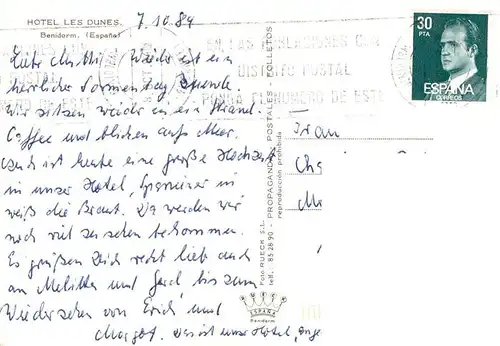 HOTEL LES DUNES.
Benidorm. (España)
7.10.84
EN LAS POBLACIONES CON
DISTRITO POSTAL
PONGA EL NUMERO DE ESTE
30
PTA
ESPAÑA
CORREOS
Liebe Wieder ist ein
herrlicher Sonnentag
Wir sitzen wieder in ein Strand.
Caffee und blicken aufs Meer.
Auch ist heute eine große Hochzeit
in unser Hotel, Spanier in
weiß die Braut. Da werden wir
noch viel zu sehen bekommen.
Es grüßen Dich recht lieb auch
an Melitta und Gerd bis zum
Wiedersehen von Erich und
Margot. Das ist unser Hotel,
Frau
Foto RUECK S.L.
telf.: 85 28 90 - PROPAGANDA - POSTALES - FOLLETOS
reproduccion prohibida
ESPAÑA
Benidorm